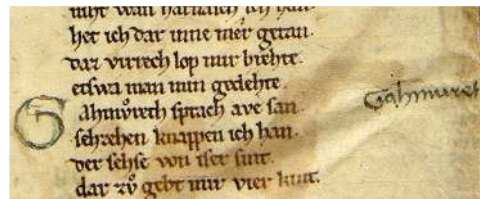 het ich dar inne mer getan
daz virrech lop mir brehte
etswa man min gedehte
Gahmůreth sprach ave san
sehzehen knappen ich han
der sehse von iser sint
dar zů gebt mir vier kint
Gahmuret